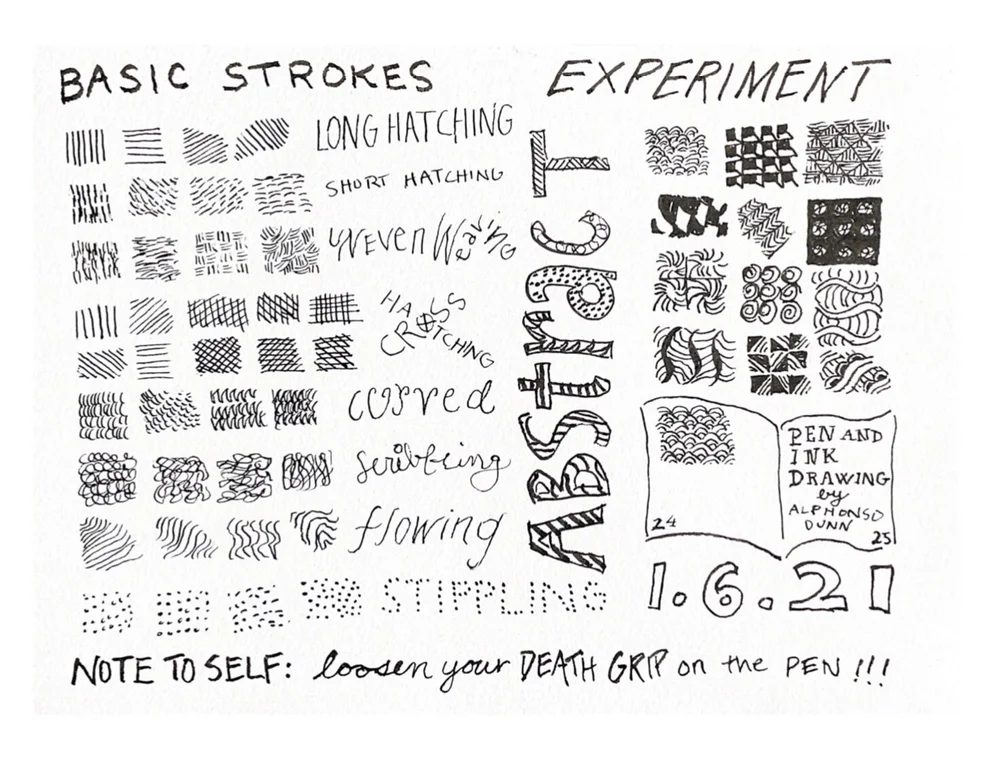 BASIC STROKES
LONG HATCHING
SHORT HATCHING
unEven Weaving
CROSS
HATCHING
curved
scribbling
flowing
STIPPLING
ABSTracT
EXPERIMENT
24
PEN AND
INK
DRAWING
by
ALPHONSO
DUNN
25
1.6.21
NOTE TO SELF: loosen your DEATH GRIP on the PEN !!!